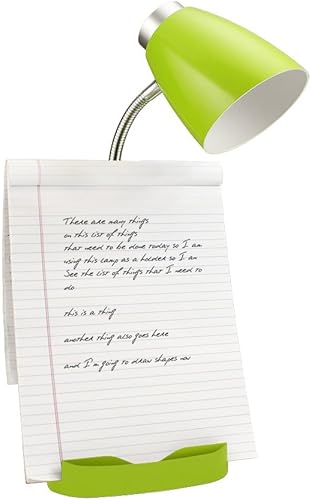 There are many things
on this list of things
that need to be done today so I am
using this lamp as a holder so I am
See the list of things that I need to
do
this is a thing
another thing also goes here
and I'm going to draw shapes now